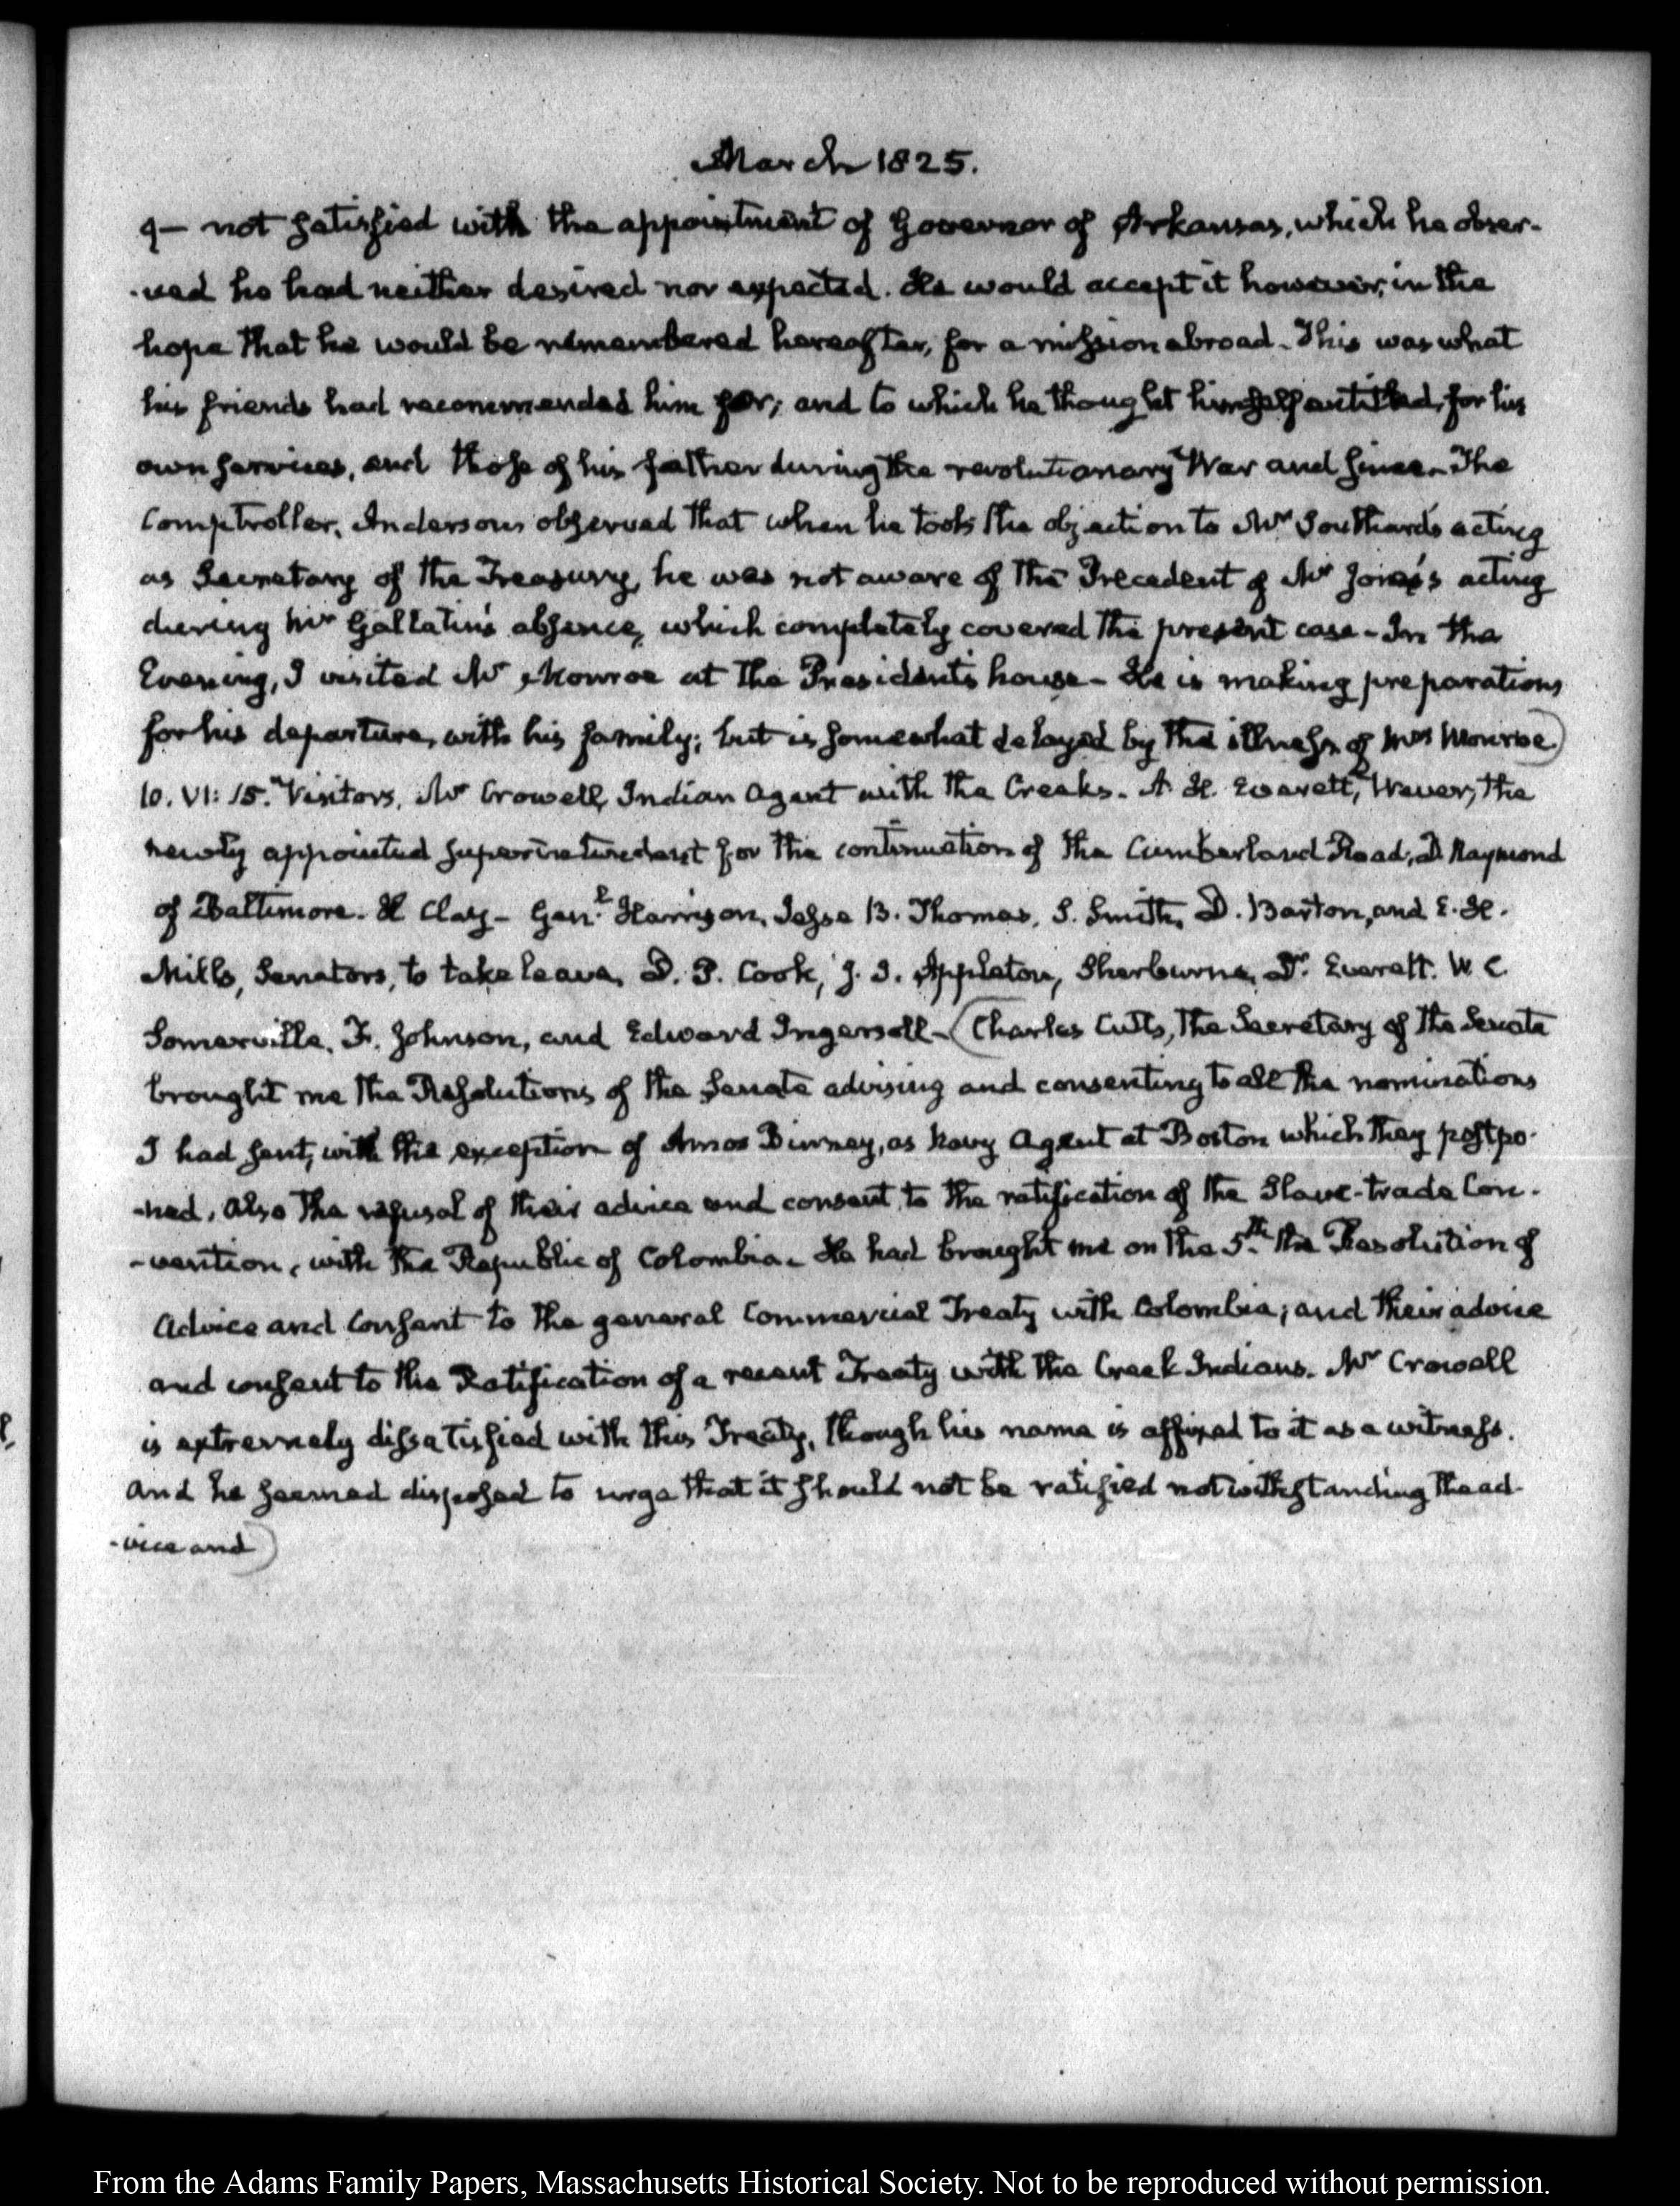 March 1825.
9— not satisfied with the appointment of Governor of Arkansas, which he obser-
-ved he had neither desired nor expected. He would accept it however, in the
hope that he would be remembered hereafter, for a mission abroad. This was what
his friends had recommended him for; and to which he thought himself entitled, for his
own services, and those of his father during the revolutionary War and since. The
Comptroller, Anderson observed that when he took the objection to Mr Southard's acting
as Secretary of the Treasury, he was not aware of the Precedent of Mr Jones's acting
during Mr Gallatin's absence, which completely covered the present case - In the
Evening, I visited Mr Monroe at the President's house - He is making preparations
for his departure, with his family; but is somewhat delayed by the illness of Mrs Monroe.)
10. VI: 15. Visitors, Mr Crowell, Indian Agent with the Creeks. A. H. Everett, Wever, the
newly appointed superintendent for the continuation of the Cumberland Road, D. Raymond
of Baltimore. H Clay - Genl. Harrison, Jesse B. Thomas, S. Smith, D. Barton, and E. H.
Mills, Senators, to take leave, D. P. Cook, J. S. Appleton, Sherburne, Dr. Everett. W. C.
Somerville, F. Johnson, and Edward Ingersoll - (Charles Cutts, the Secretary of the Senate
brought me the Resolutions of the Senate advising and consenting to all the nominations
I had sent, with the exception of Amos Binney, as Navy Agent at Boston which they postpo-
-ned, also the refusal of their advice and consent to the ratification of the Slave-trade Con-
-vention, with the Republic of Colombia. He had brought me on the 5th. the Resolution of
Advice and Consent to the general Commercial Treaty with Colombia; and their advice
and consent to the Ratification of a recent Treaty with the Creek Indians. Mr Crowell
is extremely dissatisfied with this Treaty, though his name is affixed to it as a witness.
and he seemed disposed to urge that it should not be ratified notwithstanding the ad-
-vice and)
From the Adams Family Papers, Massachusetts Historical Society. Not to be reproduced without permission.